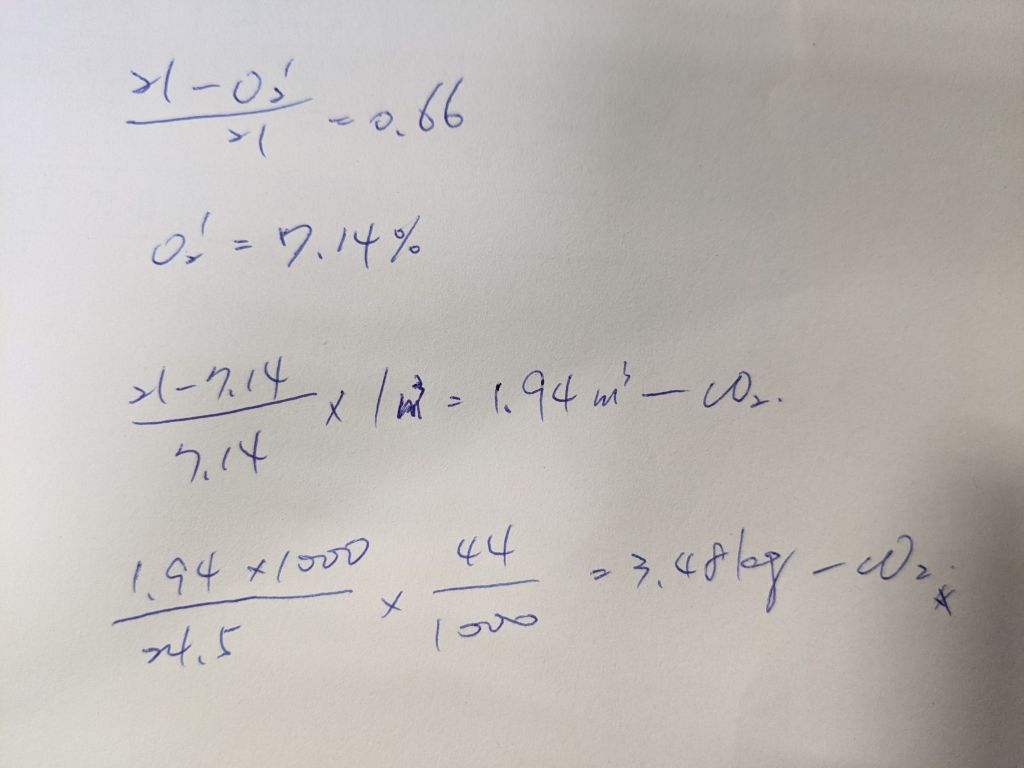 (21 - O₂')/21 = 0.66
O₂' = 7.14%
(21 - 7.14)/7.14 × 1m³ = 1.94 m³ - CO₂.
(1.94 × 1000)/24.5 × 44/1000 = 3.48 kg - CO₂